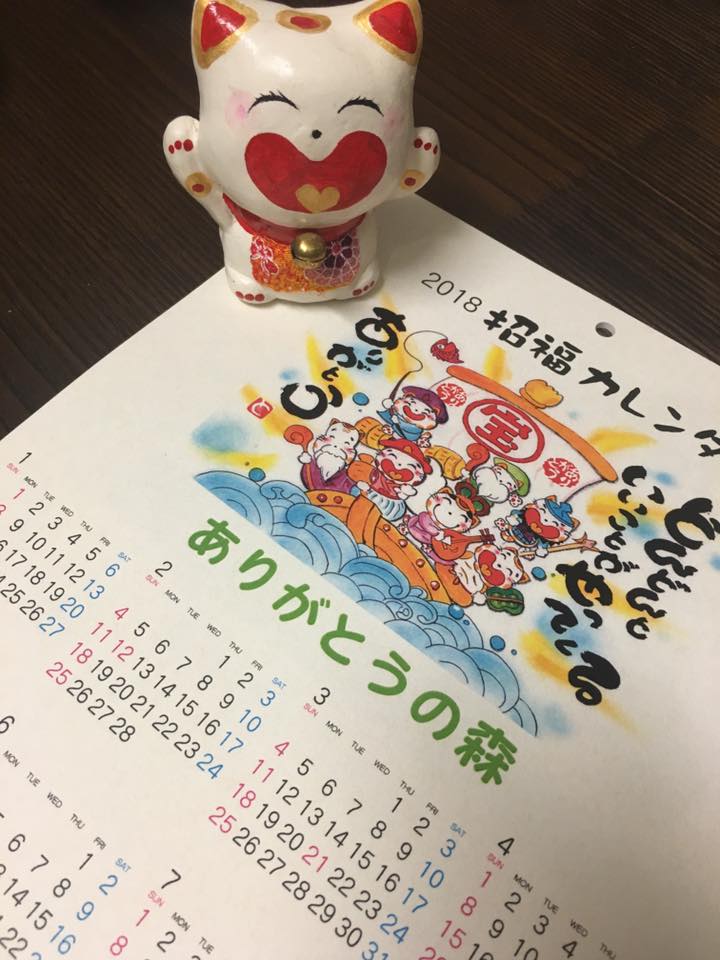 2018 招福カレンダ
どんどんと
いいことがやってくる
ありがとう
宝
ありがとうの森
1
SUN MON TUE WED THU FRI SAT
1 2 3 4 5 6
8 9 10 11 12 13
16 17 18 19 20
25 26 27
2
SUN MON TUE WED THU FRI SAT
1 2 3
4 5 6 7 8 9 10
11 12 13 14 15 16 17
18 19 20 21 22 23 24
25 26 27 28
3
SUN MON TUE WED THU FRI SAT
1 2 3
4 5 6 7 8 9 10
11 12 13 14 15 16 17
18 19 20 21 22 23 24
25 26 27 28 29 30 31
4
SUN MON TUE WED
1 2 3 4
8 9 10
15 16
22
6
TUE WED THU FRI SAT
1 2
6 7 8 9
14 15 16
22
7
SUN MON TUE WED
1 2 3
8 9